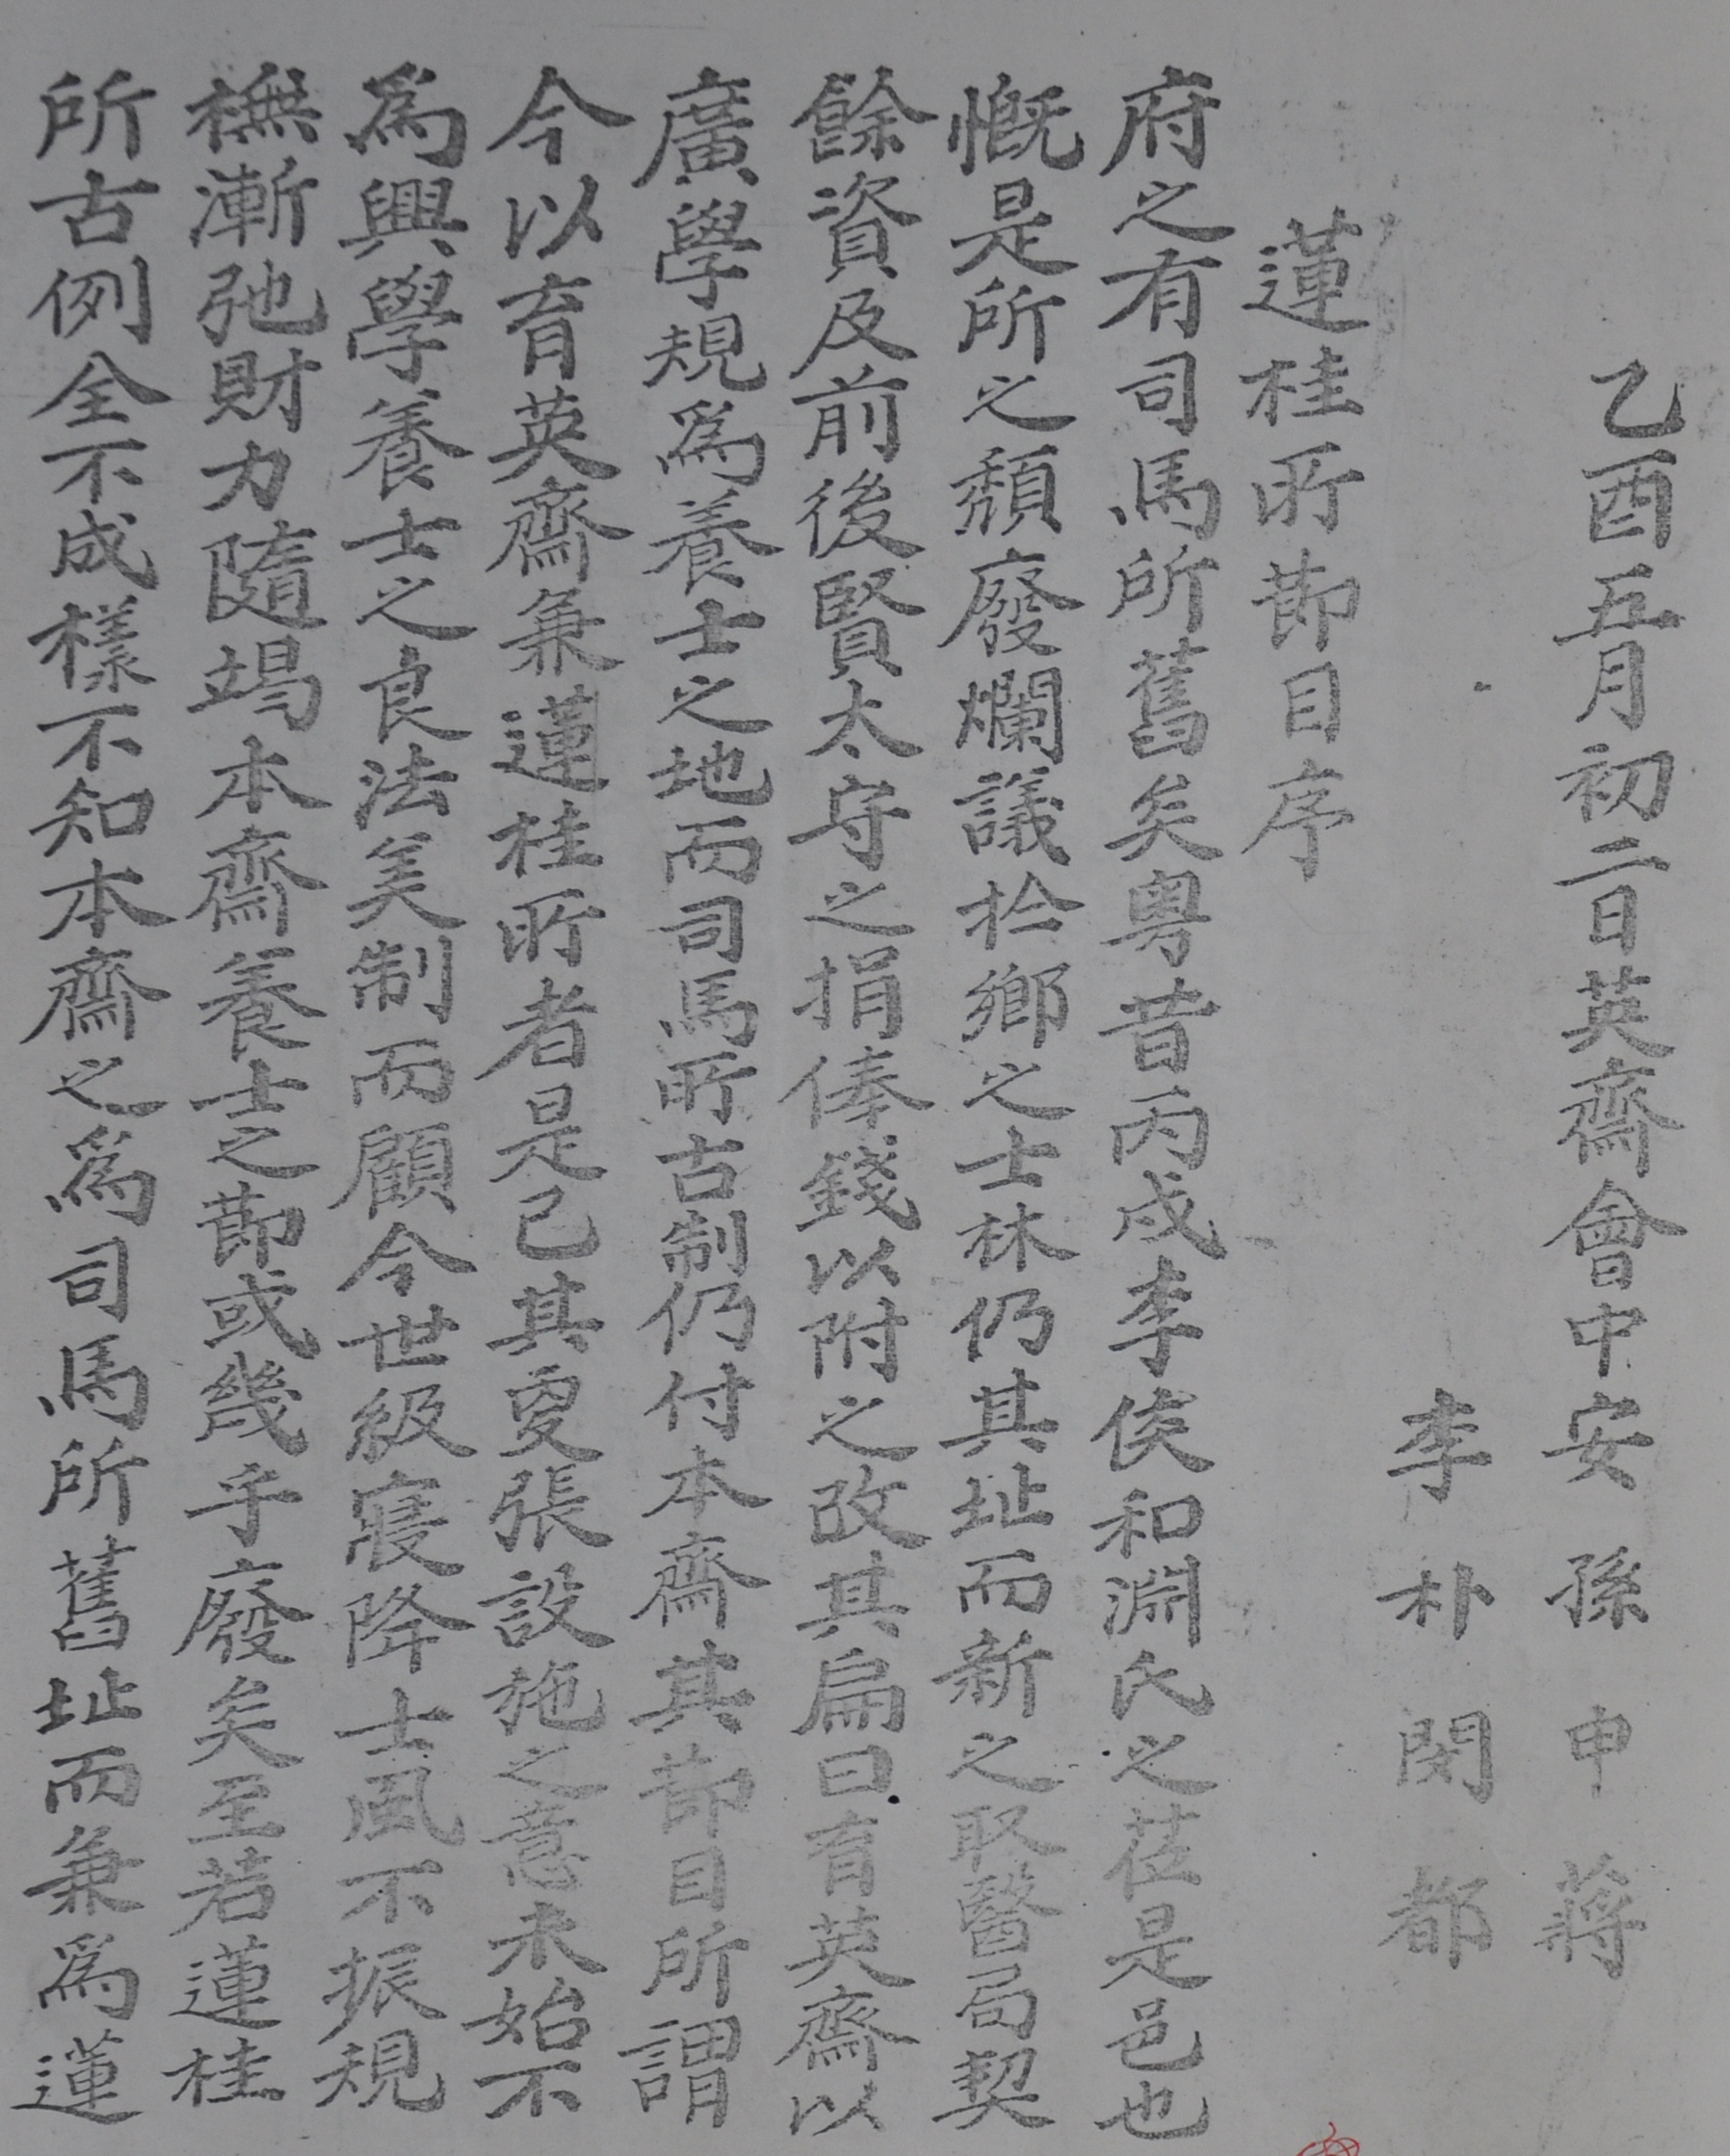 乙酉五月初二日英齋會中安孫申蔣
李朴閔都
蓮桂所節目序
府之有司馬所舊矣粤昔丙戌李侯和淵氏之莅是邑也
慨是所之頹廢爛議於鄉之士林仍其址而新之取醫局契
餘資及前後賢太守之捐俸錢以附之改其扁曰育英齋以
廣學規爲養士之地而司馬所古制仍付本齋其節目所謂
今以育英齋兼蓮桂所者是已其更張設施之意未始不
爲興學養士之良法美制而顧今世級寖降士風不振規
橅漸弛財力隨竭本齋養士之節或幾乎廢矣至若蓮桂
所古例全不成樣不知本齋之爲司馬所舊址而兼爲蓮